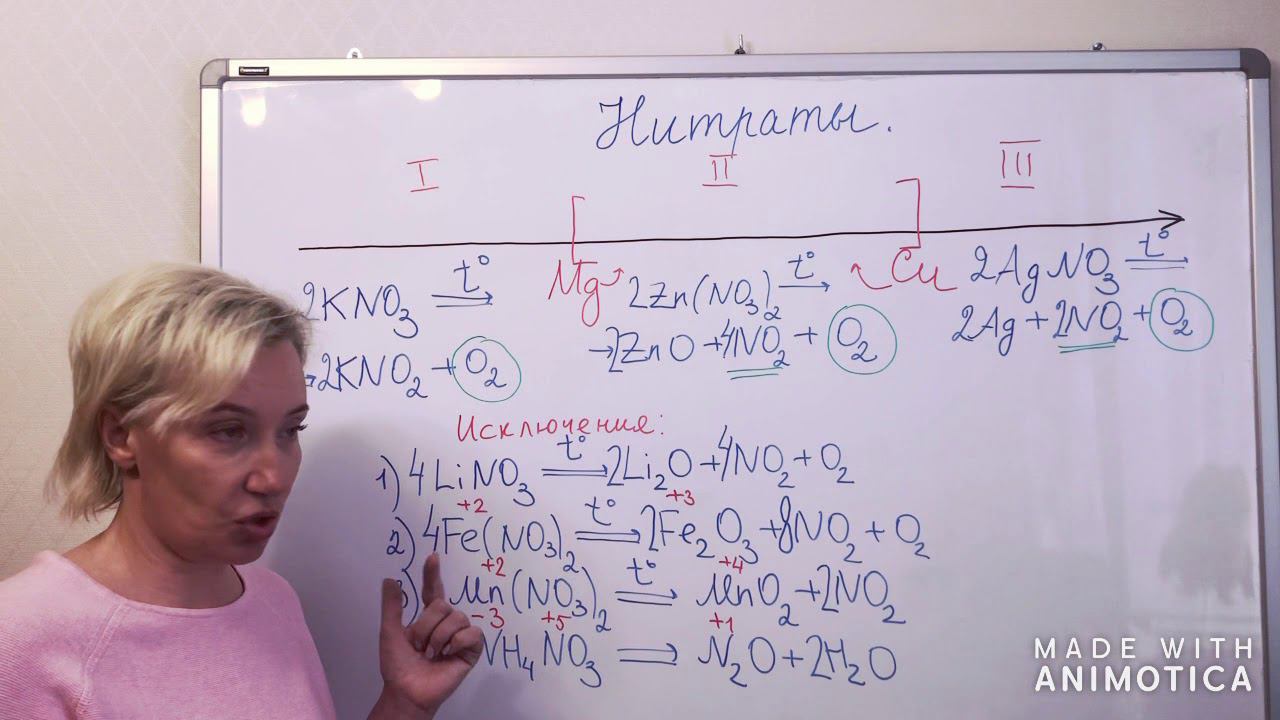 Нитраты.
I II III
Mg Cu
2KNO₃ t° →
→2KNO₂ + O₂
2Zn(NO₃)₂ t° →
→2ZnO + 4NO₂ + O₂
2AgNO₃ t° →
2Ag + 2NO₂ + O₂
Исключения:
1) 4LiNO₃ t° → 2Li₂O + 4NO₂ + O₂
+2 +3
2) 4Fe(NO₃)₂ t° → 2Fe₂O₃ + 8NO₂ + O₂
+2 +4
3) Mn(NO₃)₂ t° → MnO₂ + 2NO₂
-3 +5 +1
NH₄NO₃ → N₂O + 2H₂O
MADE WITH
ANIMOTICA